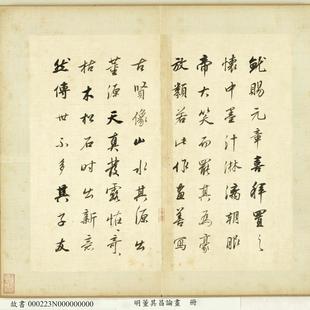 就賜元章喜拜置之
懷中墨汁淋漓朝服
帝大笑而罷其為豪
放類若此作畫善寫
古賢像山水其源出
董源天真發露怪奇
枯木松石時出新意
然傳世不多其子友
故書 000223N000000000 明董其昌論畫 冊